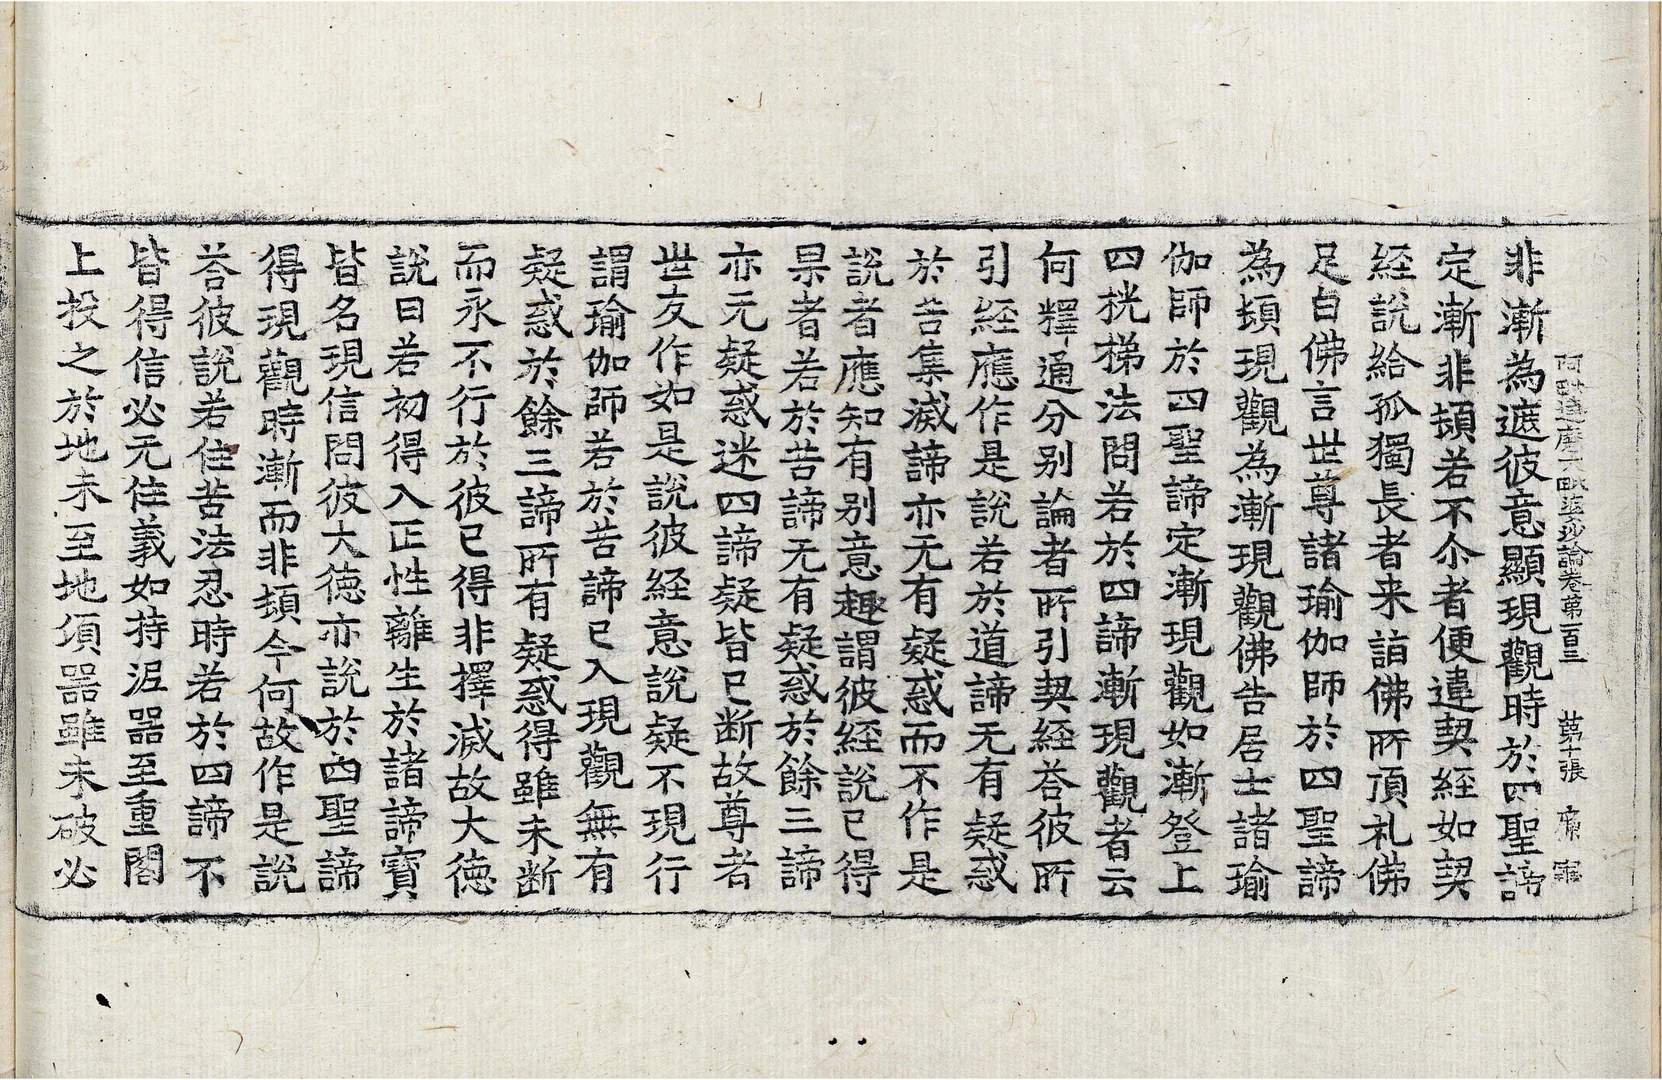 阿毗達磨大毗婆沙論卷第一百三　第十張
非漸為遮彼意顯現觀時於四聖諦
定漸非頓若不尒者便違契經如契
経說給孤獨長者来詣佛所頂礼佛
足白佛言世尊諸瑜伽師於四聖諦
為頓現觀為漸現觀佛告居士諸瑜
伽師於四聖諦定漸現觀如漸登上
四桄梯法問若於四諦漸現觀者云
何釋通分別論者所引契経荅彼所
引経應作是說若於道諦无有疑惑
於苦集滅諦亦无有疑惑而不作是
說者應知有別意趣謂彼経說已得
果者若於苦諦无有疑惑於餘三諦
亦无疑惑迷四諦疑皆已断故尊者
世友作如是說彼経意說疑不現行
謂瑜伽師若於苦諦已入現觀無有
疑惑於餘三諦所有疑惑得雖未断
而永不行於彼已得非擇滅故大徳
說曰若初得入正性離生於諸諦寶
皆名現信問彼大徳亦說於四聖諦
得現觀時漸而非頓今何故作是說
荅彼說若住苦法忍時若於四諦不
皆得信必无住義如持泥器至重閣
上投之於地未至地須器雖未破必